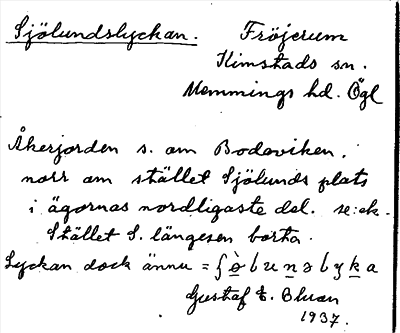 Sjölundslyckan. Fröjerum
Kimstads sn.
Memmings hd. Ögl
Åkerjorden s. om Bodaviken,
norr om stället Sjölunds plats
i ägornas nordligaste del. se: ek.
Stället S. längesen borta.
Lyckan dock ännu =
Gustaf E. Bluan
1937.